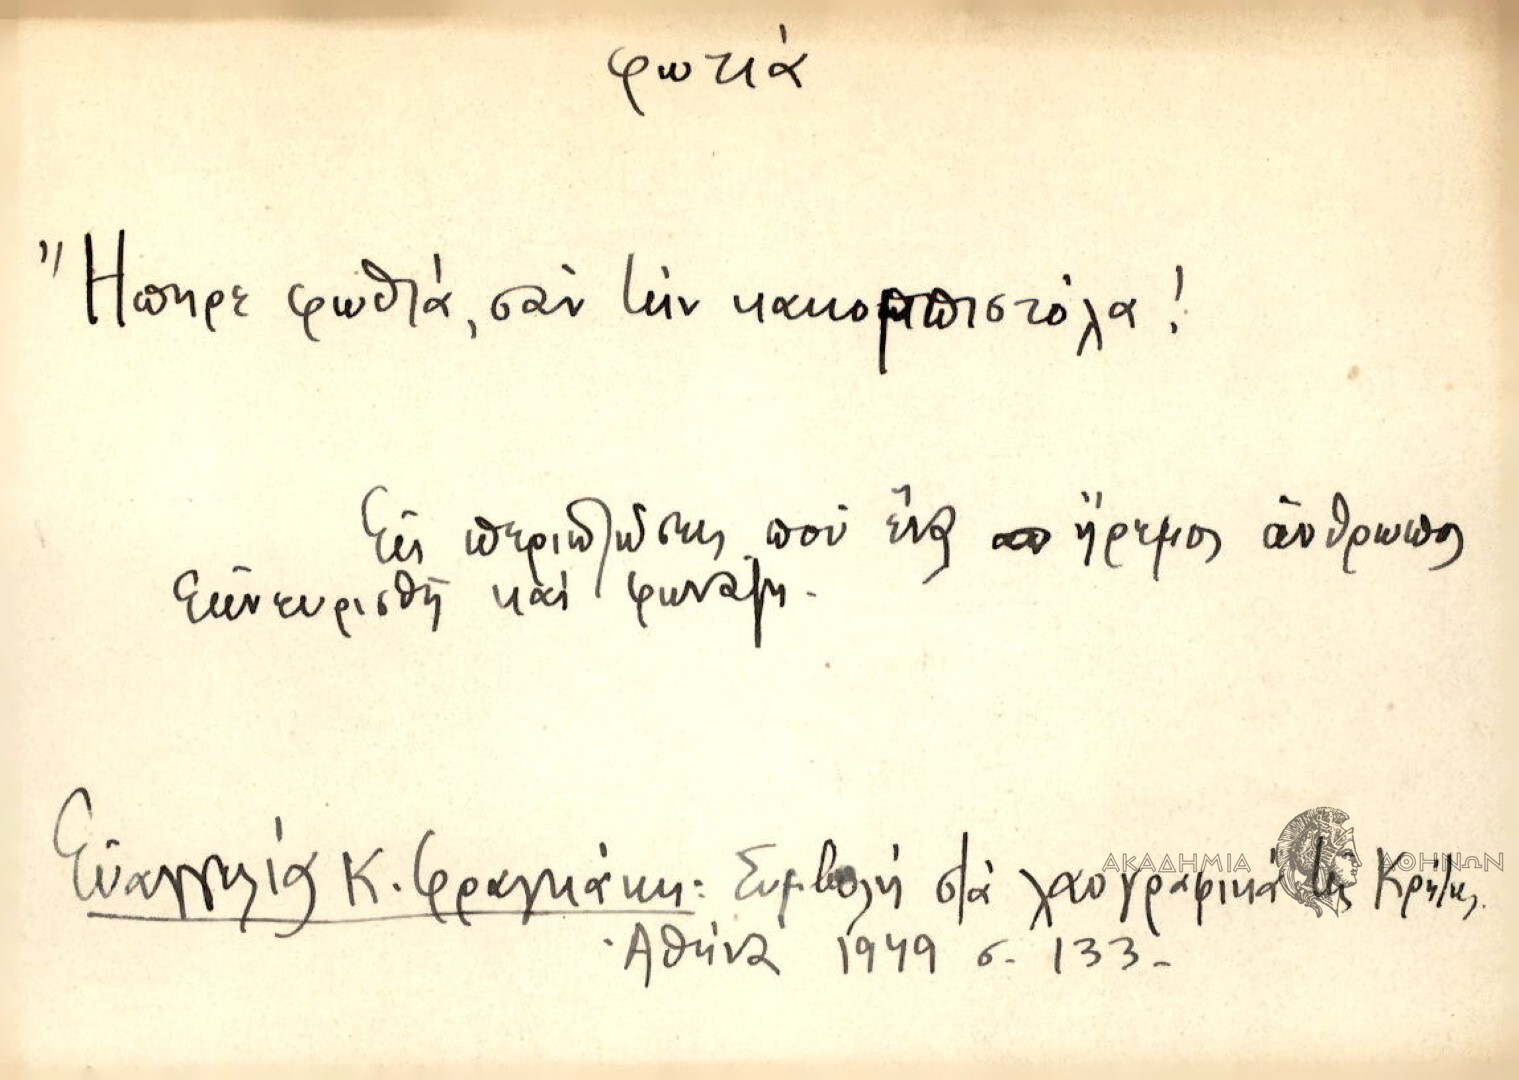 φωτιά
"Ηπηρε φωθιά, σὰν τὴν κακομπιστόλα!
Εἰς περιπτώσεις ποὺ ἕνας ἤρεμος ἄνθρωπος
ἐκνευρισθῆ καὶ φωνάξη.
Εὐαγγελίας Κ. Φραγκάκη: Συμβολὴ στὰ λαογραφικὰ τῆς Κρήτης.
Ἀθήνα 1949 σ. 133.-
ΑΚΑΔΗΜΙΑ ΑΘΗΝΩΝ